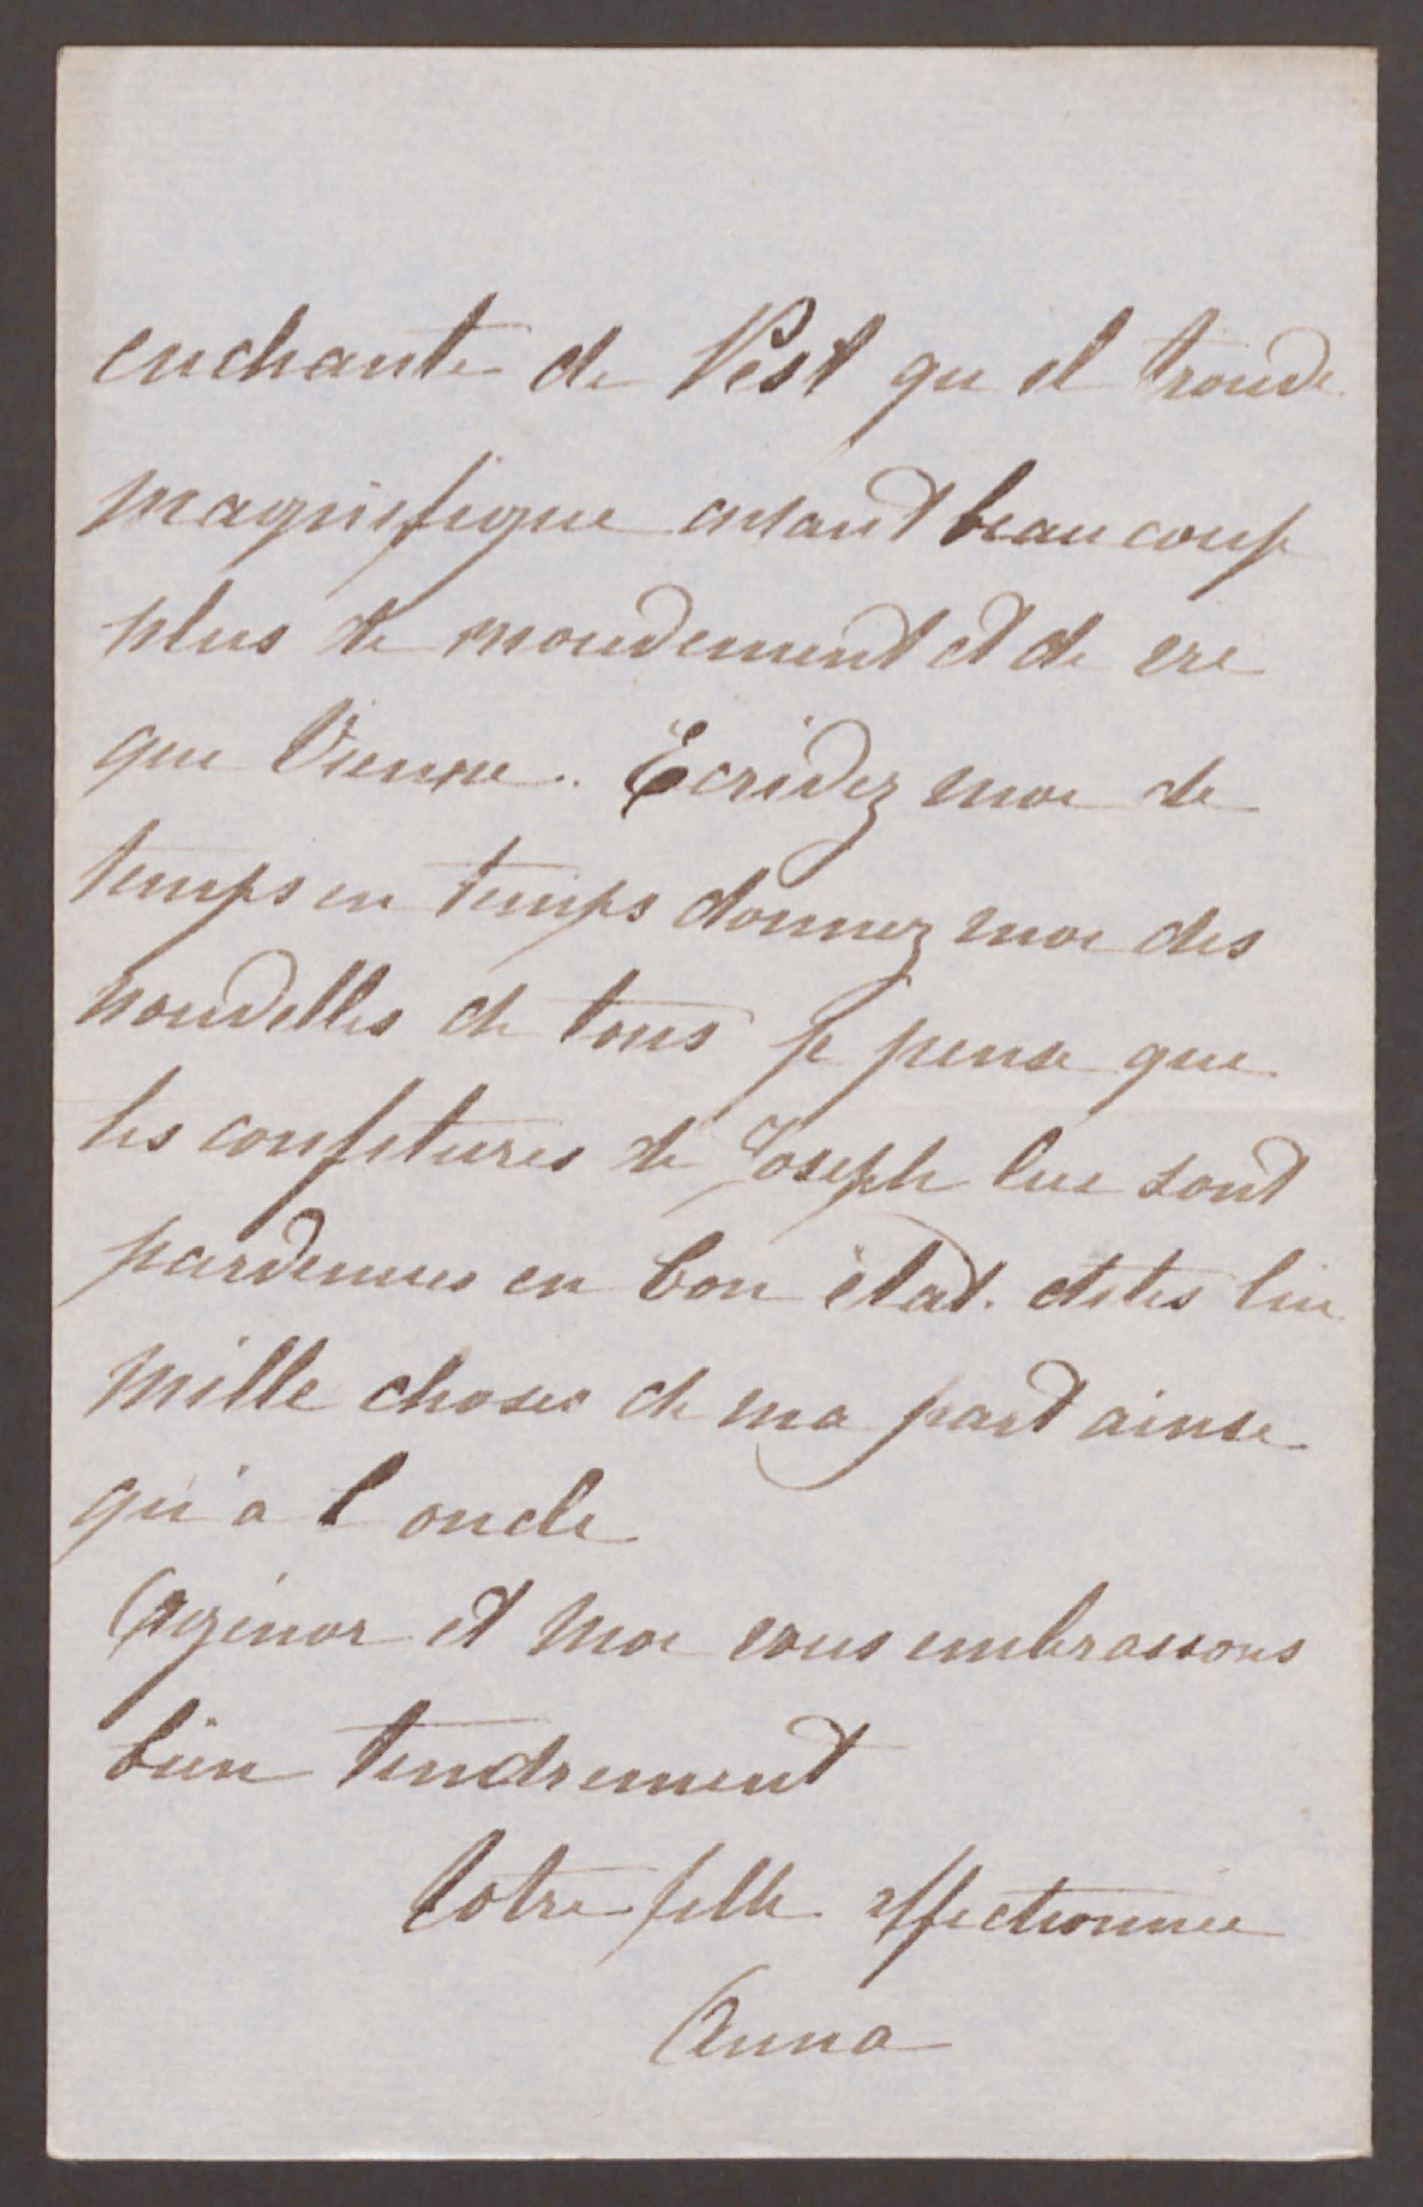 enchanté de Pest qu il trouve
magnifique ayant beaucoup
plus de mouvement et de vie
que Vienne. Ecrivez moi de
temps en temps donnez moi des
nouvelles de tous je pense que
les confitures de Joseph lui sont
parvenues en bon état. dites lui
mille choses de ma part ainsi
qu'a l oncle
Agénor et moi vous embrassons
bien tendrement
Votre fille affectionnée
Anna